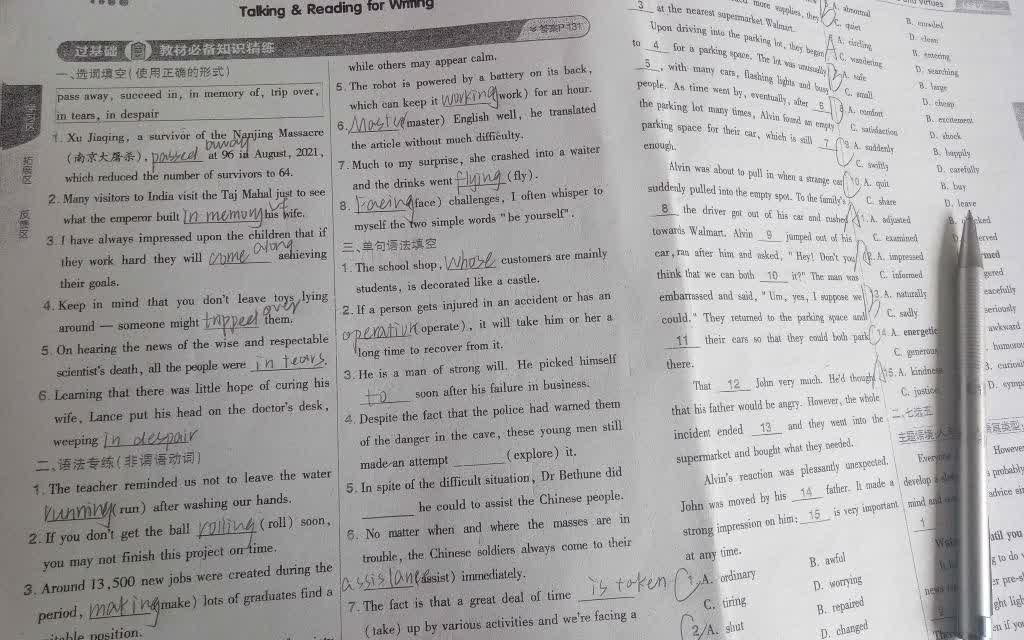 Talking & Reading for Writing
答案P·131
过基础 教材必备知识精练
一、选词填空(使用正确的形式)
pass away, succeed in, in memory of, trip over,
in tears, in despair
1. Xu Jiaqing, a survivor of the Nanjing Massacre
(南京大屠杀), passed away at 96 in August, 2021,
which reduced the number of survivors to 64.
2. Many visitors to India visit the Taj Mahal just to see
what the emperor built in memory of his wife.
3. I have always impressed upon the children that if
they work hard they will come along achieving
their goals.
4. Keep in mind that you don't leave toys lying
around — someone might tripped over them.
5. On hearing the news of the wise and respectable
scientist's death, all the people were in tears.
6. Learning that there was little hope of curing his
wife, Lance put his head on the doctor's desk,
weeping in despair
二、语法专练(非谓语动词)
1. The teacher reminded us not to leave the water
running (run) after washing our hands.
2. If you don't get the ball rolling (roll) soon,
you may not finish this project on time.
3. Around 13,500 new jobs were created during the
period, making (make) lots of graduates find a
position.
while others may appear calm.
5. The robot is powered by a battery on its back,
which can keep it working (work) for an hour.
6. (master) English well, he translated
the article without much difficulty.
7. Much to my surprise, she crashed into a waiter
and the drinks went flying (fly).
8. Faeing (face) challenges, I often whisper to
myself the two simple words "be yourself".
三、单句语法填空
1. The school shop, whose customers are mainly
students, is decorated like a castle.
2. If a person gets injured in an accident or has an
operation (operate), it will take him or her a
long time to recover from it.
3. He is a man of strong will. He picked himself
to soon after his failure in business.
4. Despite the fact that the police had warned them
of the danger in the cave, these young men still
made an attempt ______ (explore) it.
5. In spite of the difficult situation, Dr Bethune did
______ he could to assist the Chinese people.
6. No matter when and where the masses are in
trouble, the Chinese soldiers always come to their
assistance (assist) immediately.
7. The fact is that a great deal of time is token
(take) up by various activities and we're facing a
more supplies, they
3 at the nearest supermarket Walmart.
Upon driving into the parking lot, they began
to 4 for a parking space. The lot was unusually
5, with many cars, flashing lights and busy
people. As time went by, eventually, after 6
the parking lot many times, Alvin found an empty
parking space for their car, which is still 7
enough.
Alvin was about to pull in when a strange car
suddenly pulled into the empty spot. To the family's
8 the driver got out of his car and rushed
towards Walmart. Alvin 9 jumped out of his
car, ran after him and asked, "Hey! Don't you
think that we can both 10 it?" The man was
embarrassed and said, "Um, yes, I suppose we
could." They returned to the parking space and
11 their cars so that they could both park
there.
That 12 John very much. He'd thought
that his father would be angry. However, the whole
incident ended 13 and they went into the
supermarket and bought what they needed.
Alvin's reaction was pleasantly unexpected.
John was moved by his 14 father. It made a
strong impression on him: 15 is very important
at any time.
1. A. ordinary B. awful
C. tiring D. worrying
2. A. shut B. repaired
D. changed
A. abnormal B. crowded
C. quiet D. clean
A. circling B. entering
C. wandering D. searching
A. safe B. large
C. small D. cheap
A. comfort B. excitement
C. satisfaction D. shock
A. suddenly B. happily
C. swiftly D. carefully
10. A. quit B. buy
C. share D. leave
A. adjusted
C. examined
A. impressed
C. informed
13. A. naturally
C. sadly
14. A. energetic
C. generous
15. A. kindness
C. justice
二、七选五